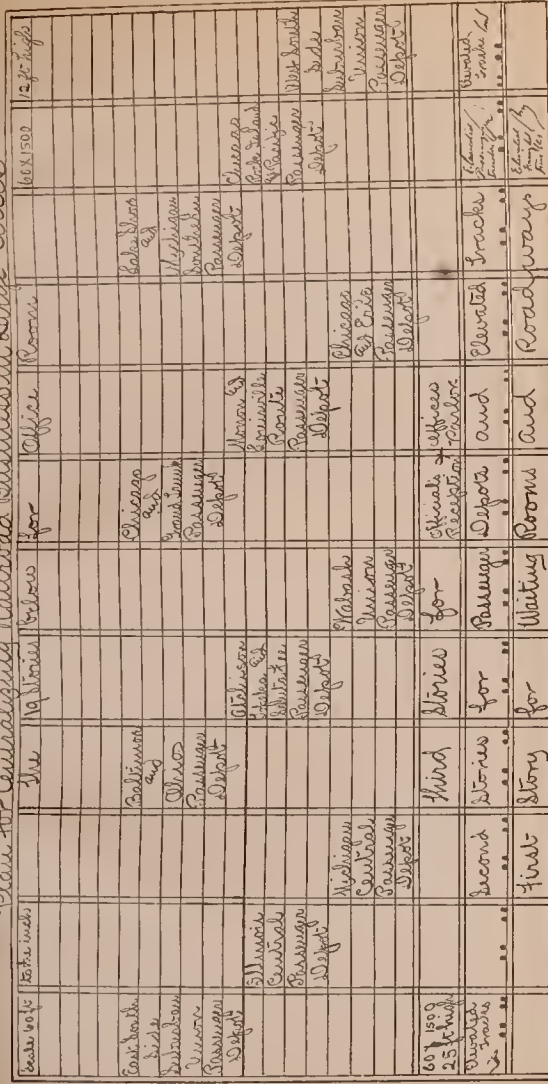 Plan for Centralizing Railroad Business in Large Cities
Scale 60 ft to the inch The 19 Stories below for Office Room 60 X 1500 12 ft high
East South
Side
Suburban
Union
Passenger
Depot
Illinois
Central
Passenger
Depot
Michigan
Central
Passenger
Depot
Baltimore
and
Ohio
Passenger
Depot
Atchison
Topeka &
Santa Fee
Passenger
Depot
Wabash
Union
Passenger
Depot
Chicago
and
Grand Trunk
Passenger
Depot
Monon &
Louisville
Route
Passenger
Depot
Chicago
and Erie
Passenger
Depot
Lake Shore
and
Michigan
Southern
Passenger
Depot
Chicago
Rock Island
& Pacific
Passenger
Depot
West South
Side
Suburban
Union
Passenger
Depot
60 X 1500
25 ft high
Third Stories for Officials Offices
Reception Parlor
Elevated
Tracks
Second Stories for Passenger Depots and Elevated Tracks
Elevated
First Story for Waiting Rooms and Roadways
Elevated